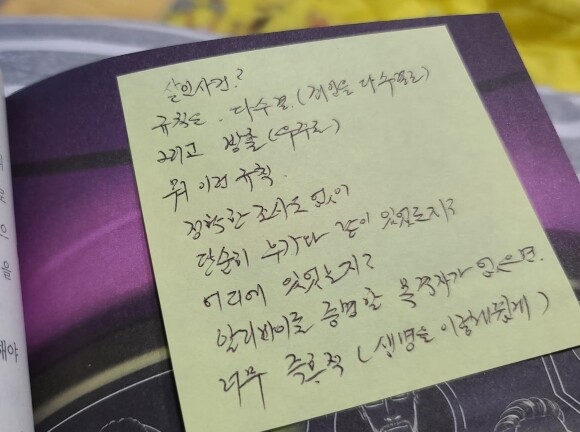 살인사건?
규칙은. 다수결 (게임은 다수결로)
그리고 방출 (우주로)
뭐 이런 규칙.
정확한 조사도 없이
단순히 누가 다 같이 있었는지?
어디에 있었는지?
알리바이를 증명할 목격자가 없으면.
너무 즉흥적 (생명을 이렇게 쉽게)
해야